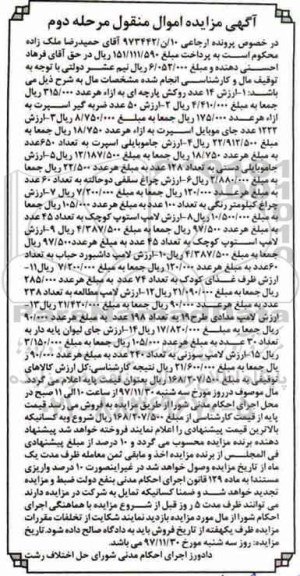 آگهی مزایده اموال منقول مرحله دوم
در خصوص پرونده ارجاعی ۱۰/ن/۹۷۳۴۴۲ آقای حمیدرضا ملک زاده
محکوم است به پرداخت مبلغ ۱۵۱/۱۱۱/۵۹۰ ریال در حق آقای فرهاد
احسنی دهنده و مبلغ ۶/۰۵۲/۰۰۰ ریال نیم عشر دولتی با توجه به
توقیف مال و کارشناسی انجام شده مشخصات مال به شرح ذیل می
باشد: ۱-ارزش ۱۴ عدد روکش پارچه ای به ازاء هرعدد ۳۱۵/۰۰۰ ریال
جمعا به مبلغ ۴/۴۱۰/۰۰۰ ریال ۲-ارزش ۵۰ عدد ضربه گیر اسپرت به
ازاء هرعدد ۱۷۵/۰۰۰ ریال جمعا به مبلغ ۸/۷۵۰/۰۰۰ ریال ۳-ارزش
۱۲۲۲ عدد جای موبایل اسپرت به ازاء هرعدد ۱۸/۷۵۰ ریال جمعا به
مبلغ ۲۲/۹۱۲/۵۰۰ ریال ۴-ارزش جاموبایلی اسپرت به تعداد ۶۵۰عدد
به مبلغ هرعدد ۱۸/۷۵۰ ریال جمعا به مبلغ ۱۲/۱۸۷/۵۰۰ ریال ۵-ارزش
جاموبایلی دستی به تعداد ۱۲۸ عدد به مبلغ هرعدد ۲۲/۵۰۰ ریال جمعا
به مبلغ ریال ۶-ارزش چراغ سقفی دوحالته به تعداد ۶۰ عدد
به مبلغ هرعدد ۱۲۰/۰۰۰ ریال جمعا به مبلغ ۷/۲۰۰/۰۰۰ ریال ۷-ارزش
چراغ کیلومتر رنگی به تعداد ۱۰۰ عدد به مبلغ هرعدد ۱۰۵/۰۰۰ ریال جمعا
به مبلغ ۱۰/۵۰۰/۰۰۰ ریال ۸-ارزش لامپ استوپ کوچک به تعداد ۴۵ عدد
به مبلغ هرعدد ۹۷/۵۰۰ ریال جمعا به مبلغ ۴/۳۸۷/۵۰۰ ریال ۹-ارزش
لامپ استوپ کوچک به تعداد ۴۵ عدد به مبلغ هرعدد ۹۷/۵۰۰ ریال
جمعا به مبلغ ۴/۳۸۷/۵۰۰ ریال ۱۰-ارزش لامپ داشبورد حباب به تعداد
۶۰عدد به مبلغ هرعدد ۱۲۰/۰۰۰ ریال جمعا به مبلغ ۷/۲۰۰/۰۰۰ ریال ۱۱-
ارزش ظرف غذای کودک به تعداد ۷۴ عدد به مبلغ هرعدد ۲۸۵/۰۰۰
ریال جمعا به مبلغ ۲۱/۰۹۰/۰۰۰ ریال ۱۲-ارزش لامپ مطالعه به تعداد ۲۳۸
عدد به مبلغ هرعدد ۹۰/۰۰۰ ریال جمعا به مبلغ ۲۱/۴۲۰/۰۰۰ ریال ۱۳-
ارزش لامپ مدادی طرح۱۹ به تعداد ۱۹۸ عدد به مبلغ هرعدد ۹۰/۰۰۰
ریال جمعا به مبلغ ۱۷/۸۲۰/۰۰۰ ریال ۱۴-ارزش جای لیوان پایه دار به
تعداد ۳۰ عدد به مبلغ هرعدد ۱۰۵/۰۰۰ ریال جمعا به مبلغ ۳/۱۵۰/۰۰۰
ریال ۱۵-ارزش لامپ سوزنی به تعداد ۲۴۰ عدد به مبلغ هرعدد ۹۰/۰۰۰
ریال جمعا به مبلغ ۲۱/۶۰۰/۰۰۰ ریال نتیجه کارشناسی:کل ارزش کالاهای
توقیفی به مبلغ ۱۶۸/۲۰۷/۵۱۰ ریال بعنوان قیمت پایه اعلام می گردد.
مال موصوف درروز مورخ سه شنبه ۹۷/۱۱/۳۰ ساعت ۱۰الی ۱۱صبح در
محل اجرای احکام مدنی شورا از طریق مزایده به فروش می رسد. قیمت
پایه از قیمت کارشناسی از مبلغ ۱۶۸/۲۰۷/۵۱۰ ریال شروع وبه کسانیکه
بالاترین قیمت پیشنهادی را اعلام نمایند فروخته خواهد شد پیشنهاد
دهنده برنده مزایده محسوب می گردد و ۱۰ درصد از مبلغ پیشنهادی
فی المجلس از برنده مزایده اخذ و مابقی ثمن معامله ظرف مدت یک
ماه از تاریخ مزایده وصول خواهد شد در غیراینصورت ۱۰ درصد واریزی
مستندا به ماده ۱۲۹ قانون اجرای احکام مدنی بنفع دولت ضبط و مزایده
تجدید خواهد شد. و ضمنا کسانیکه تمایل به شرکت در مزایده دارند
می توانند ظرف مدت ۵ روز قبل از شروع مزایده با هماهنگی اجرای
احکام شورا از مال مورد مزایده بازدید نمایند شکایت از تخلفات مقررات
مزایده ظرف یکهفته از تاریخ فروش باید به دادگاه صالح داده شود. تاریخ
مزایده: روز سه شنبه مورخ ۹۷/۱۱/۳۰ می باشد.
دادورز اجرای احکام مدنی شورای حل اختلاف رشت